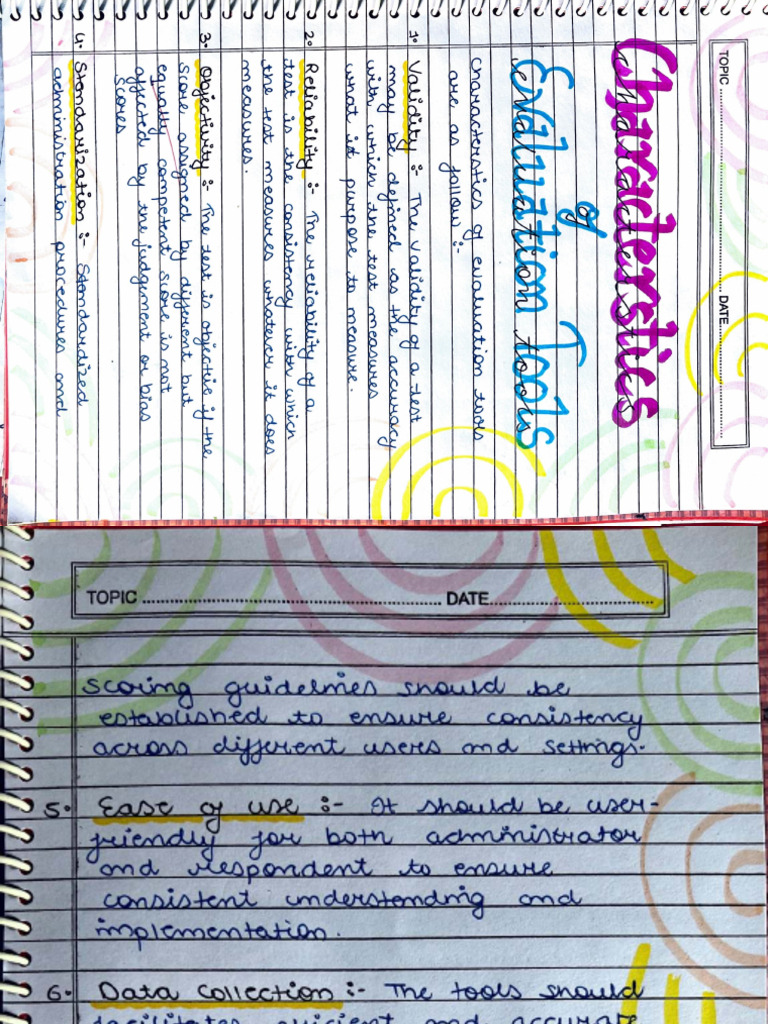 TOPIC DATE
Characterstics
of
Evaluation Tools
characterstics of evaluation tools
are as follow :-
1. Validity :- The validity of a test
may be defined as the accuracy
with which the test measures
what it purpose to measure.
2. Reliability :- The reliability of a
test is the consistency with which
the test measures whatever it does
measures.
3. Objectivity :- The test is objective if the
score assigned by different but
equally competent score is not
affected by the judgement or bias
scores
4. Standarization :- Standardized
administration procedures and
TOPIC DATE
scoring guidelines should be
established to ensure consistency
across different users and settings.
5. Ease of use :- It should be user-
friendly for both administrator
and respondent to ensure
consistent understanding and
implementation.
6. Data Collection :- The tools should
and accurate